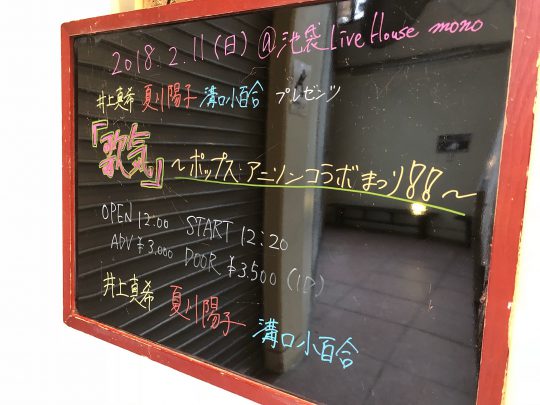 2018.2.11(日)@池袋Live House mono
井上真希 夏川陽子 溝口小百合 プレゼンツ
『歌気』 ～ポップス・アニソンコラボまつり!!～
OPEN 12:00 START 12:20
ADV ¥3,000 DOOR ¥3,500 (1D)
井上真希 夏川陽子 溝口小百合